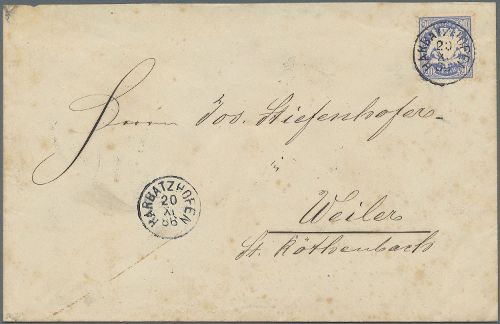 HARBATZHOFEN
20
XI
Herrn Jos. Stiefenhofer
in
HARBATZHOFEN
20
XI
86
Weiler
St. Röthenbach